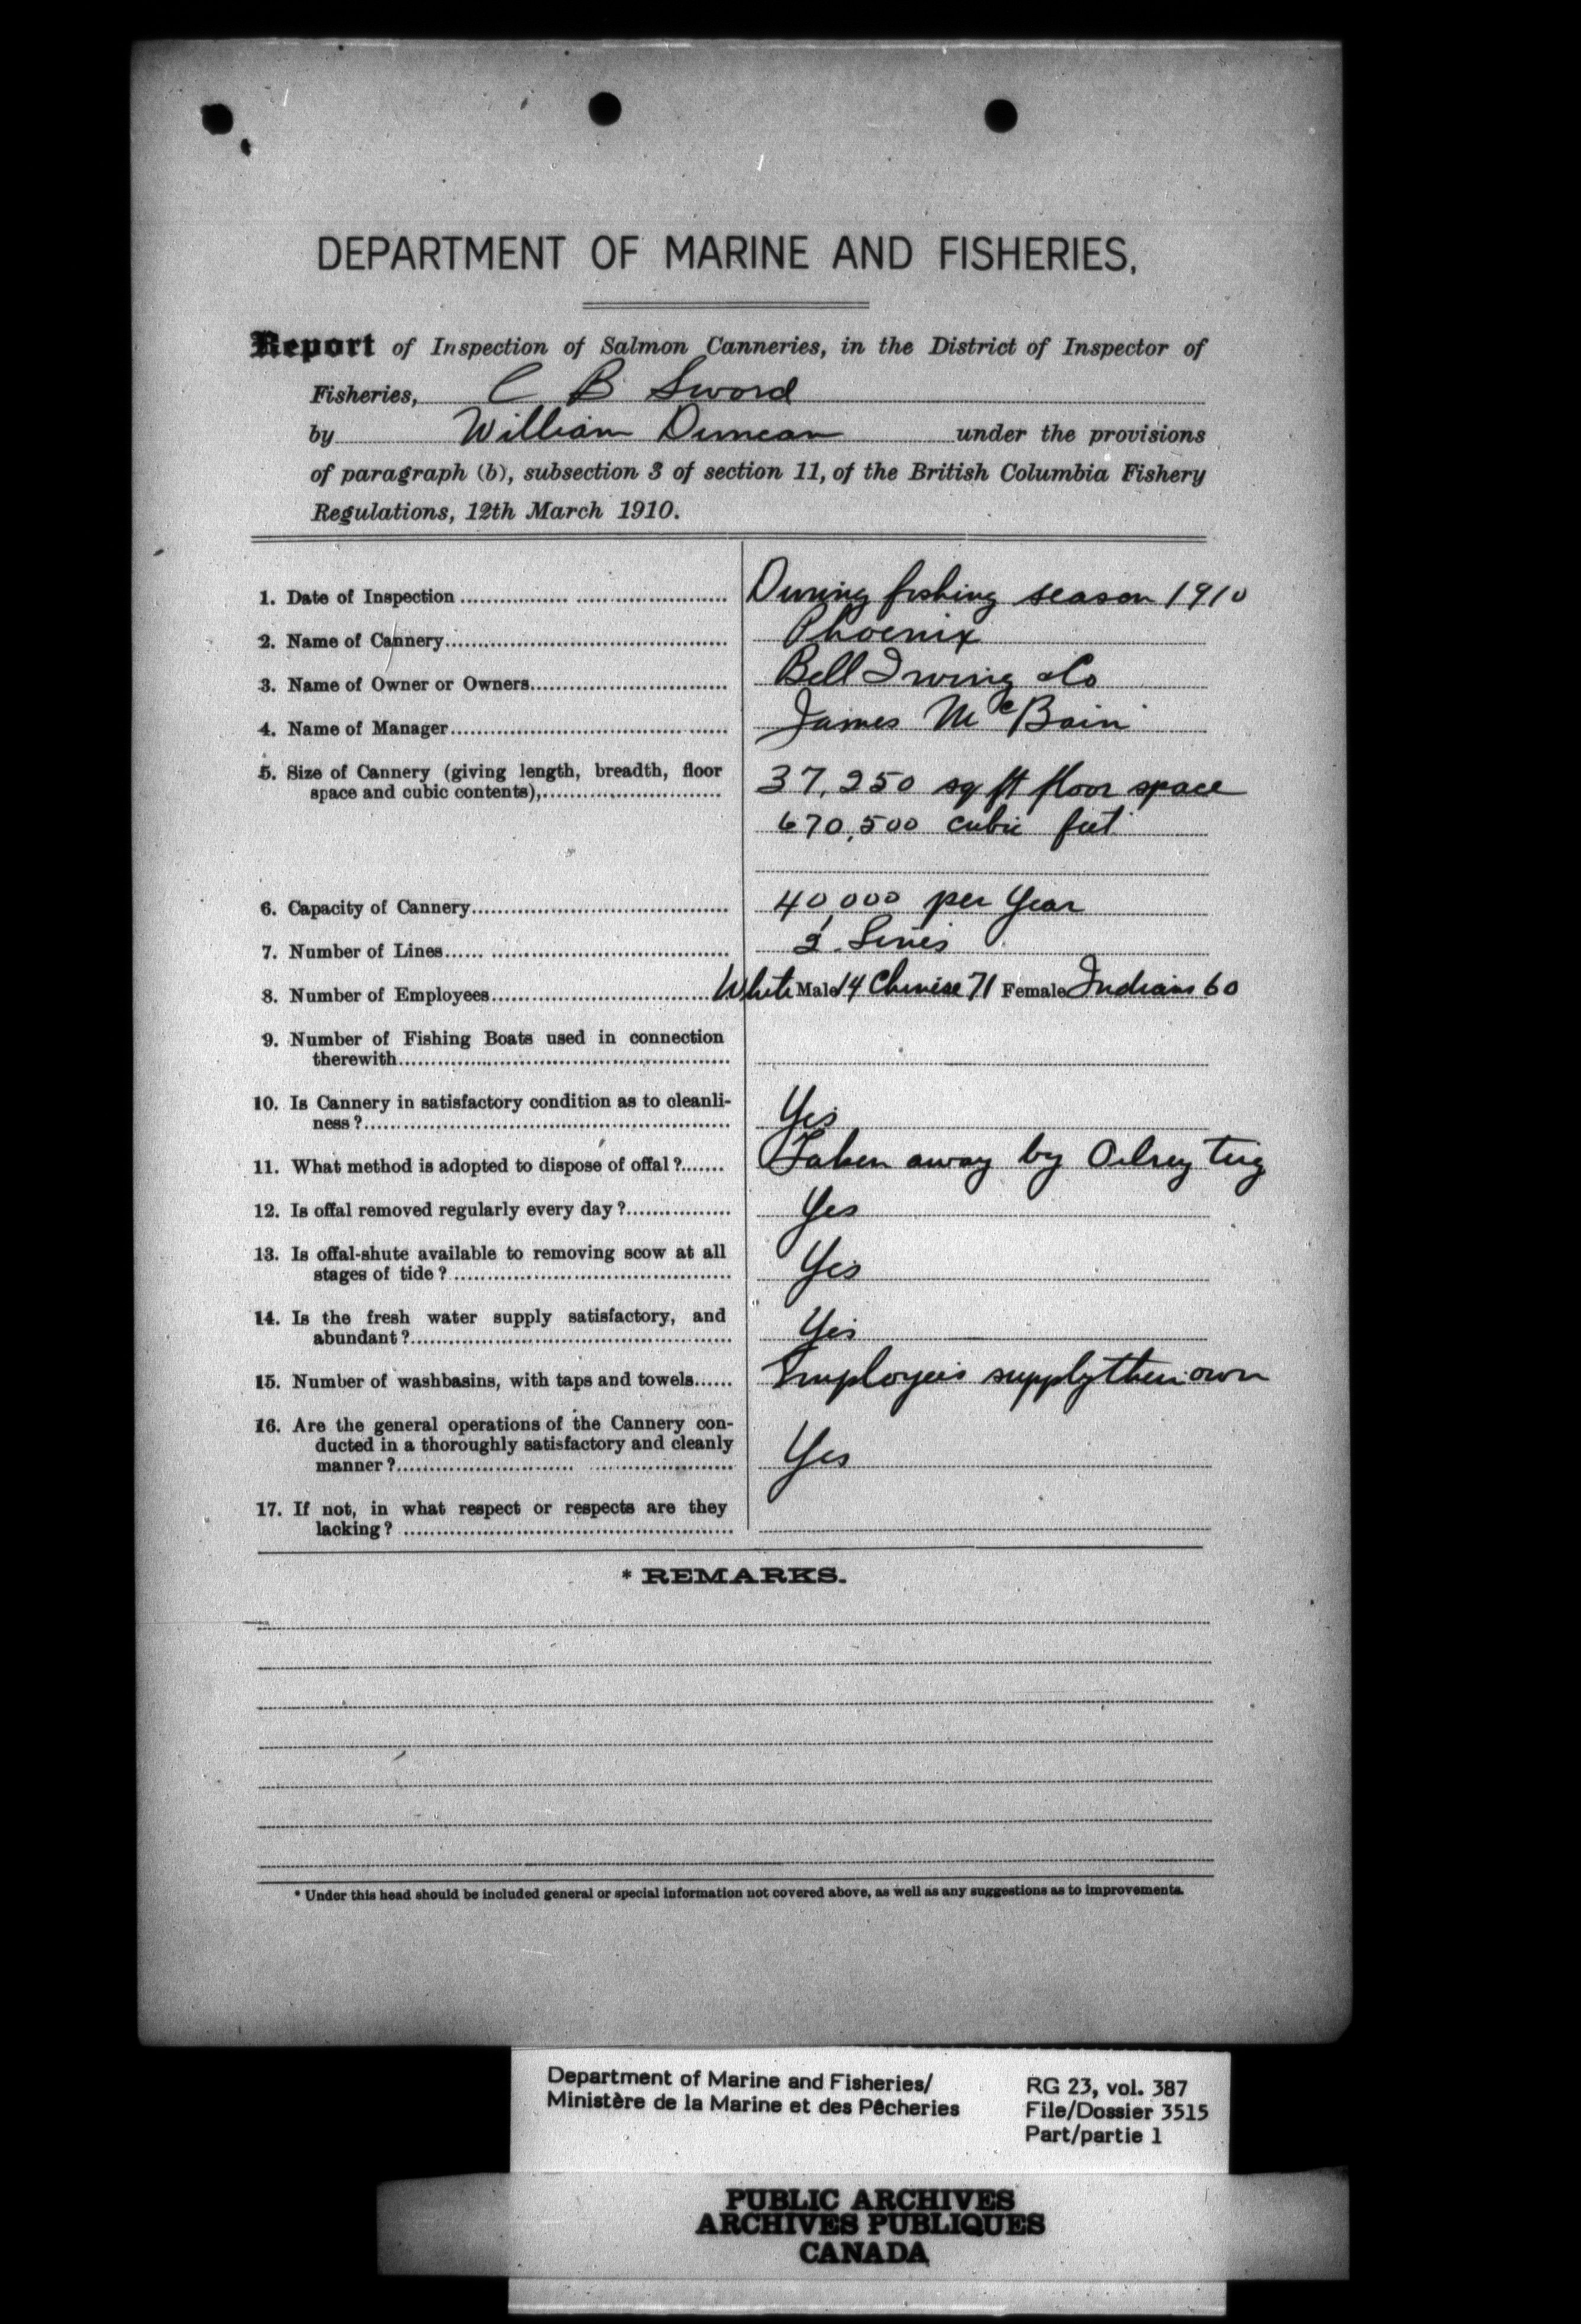 DEPARTMENT OF MARINE AND FISHERIES,
Report of Inspection of Salmon Canneries, in the District of Inspector of
Fisheries, C B Sword
by William Duncan under the provisions
of paragraph (b), subsection 3 of section 11, of the British Columbia Fishery
Regulations, 12th March 1910.
1. Date of Inspection During fishing season 1910
2. Name of Cannery Phoenix
3. Name of Owner or Owners Bell Irving & Co
4. Name of Manager James McBain
5. Size of Cannery (giving length, breadth, floor
space and cubic contents), 37,250 sq ft floor space
670,500 cubic feet
6. Capacity of Cannery 40,000 per Year
7. Number of Lines 2. Lines
8. Number of Employees White Male 14 Chinese 71 Female Indians 60
9. Number of Fishing Boats used in connection
therewith
10. Is Cannery in satisfactory condition as to cleanli-
ness? Yes
11. What method is adopted to dispose of offal? Taken away by Oilrey tug
12. Is offal removed regularly every day? Yes
13. Is offal-shute available to removing scow at all
stages of tide? Yes
14. Is the fresh water supply satisfactory, and
abundant? Yes
15. Number of washbasins, with taps and towels Employees supply their own
16. Are the general operations of the Cannery con-
ducted in a thoroughly satisfactory and cleanly
manner? Yes
17. If not, in what respect or respects are they
lacking?
* REMARKS.
* Under this head should be included general or special information not covered above, as well as any suggestions as to improvements.
Department of Marine and Fisheries/
Ministère de la Marine et des Pêcheries
RG 23, vol. 387
File/Dossier 3515
Part/partie 1
PUBLIC ARCHIVES
ARCHIVES PUBLIQUES
CANADA